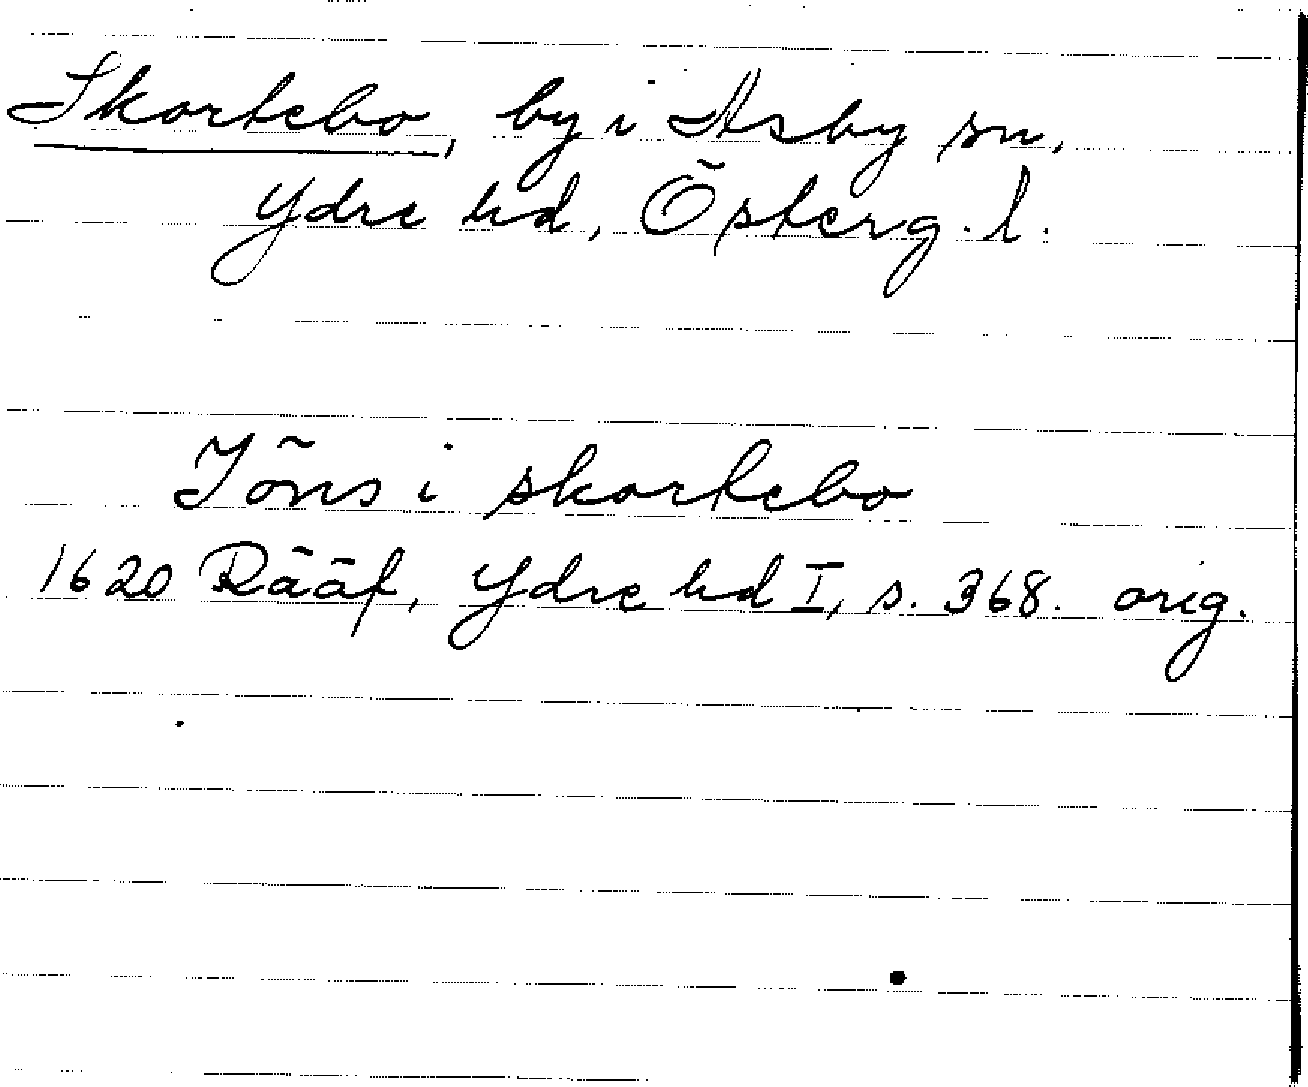 Skortebo, by i Asby sn,
Ydre hd, Österg. l.
Jöns i skortebo
1620 Rääf, Ydre hd I, s. 368. orig.